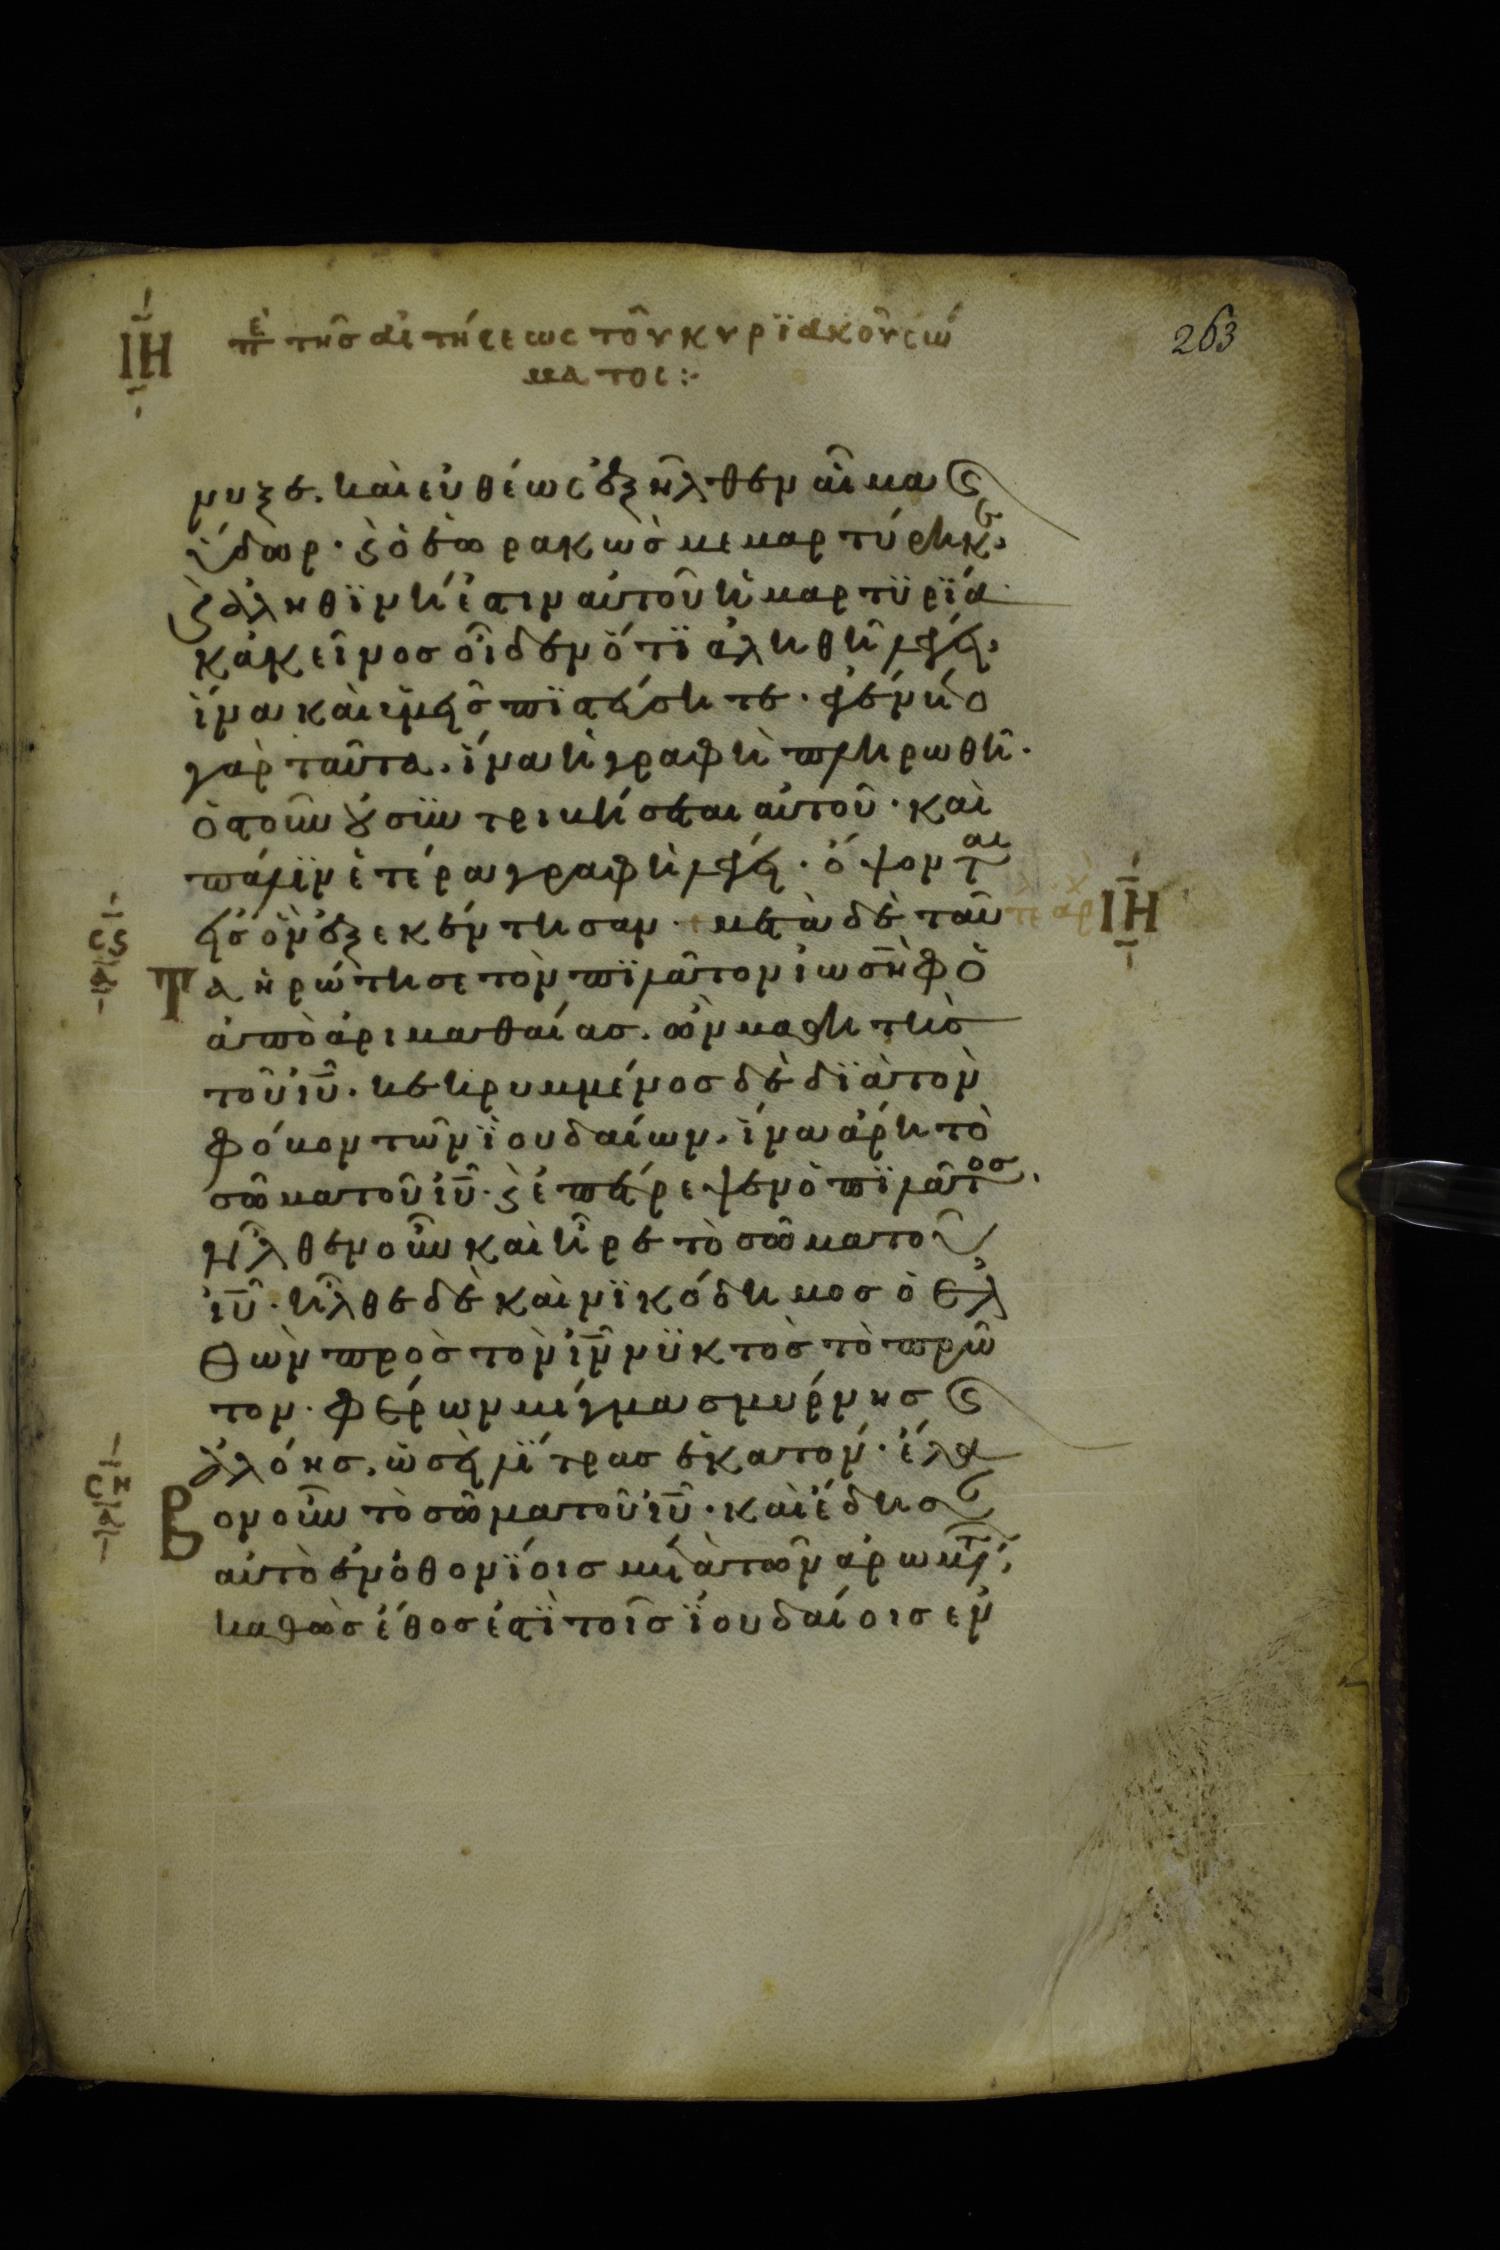 ΙΗ πε τῆς αἰτήσεως τοῦ κυρϊακοῦ σώ 263
ματος :·
νυξε. καὶ εὐθέως ἐξῆλθεν αἷμα ϛ
ὕδωρ · ϛ ὁ ἑωρακὼς μεμαρτύρηκε,
ϛ ἀληθϊνή ἐστιν αὐτοῦ ἡ μαρτϋρϊα
κἀκεῖνος οἶδεν ὅτϊ ἀληθῆ λέγει,
ἵνα καὶ ὑμεῖς πϊστεύσητε · ἐγένετο
γὰρ ταῦτα. ἵνα ἡ γραφὴ πληρωθῆ ·
ὀστοῦν οὐ συντριβήσεται αὐτοῦ · καὶ
πάλϊν ἑτέρα γραφὴ λέγει · ὄψονται
εἰς ὃν ἐξεκέντησαν · μετὰ δὲ ταῦ ΙΗ
ϹϚ
Τα ἠρώτησε τὸν πϊλᾶτον ἰωσὴφ ὁ
ἀπὸ ἀριμαθαίας. ὢν μαθητὴς
τοῦ ἰῡ · κεκρυμμένος δὲ δϊὰ τὸν
φόβον τῶν ϊουδαίων. ἵνα ἄρη τὸ
σῶμα τοῦ ἰῡ · ϛ ἐπέτρεψεν ὁ πϊλᾶτος.
ἦλθεν οὖν καὶ ἦρε τὸ σῶμα τοῦ
ἰῡ · ἦλθε δὲ καὶ νϊκόδημος ὁ ἐλ
θὼν πρὸς τὸν ἰν̄ νϋκτὸς τὸ πρῶ
τον · φέρων μίγμα σμύρνης ϛ
ἀλόης. ὡσεὶ λϊτρας ἑκατόν · ἔλα
ϹΗ
Βον οὖν τὸ σῶμα τοῦ ἰῡ · καὶ ἔδησαν
αὐτὸ ἐν ὀθονϊοις μετὰ τῶν ἀρωμάτων,
καθὼς ἔθος ἐστϊ τοῖς ϊουδαίοις ἐν